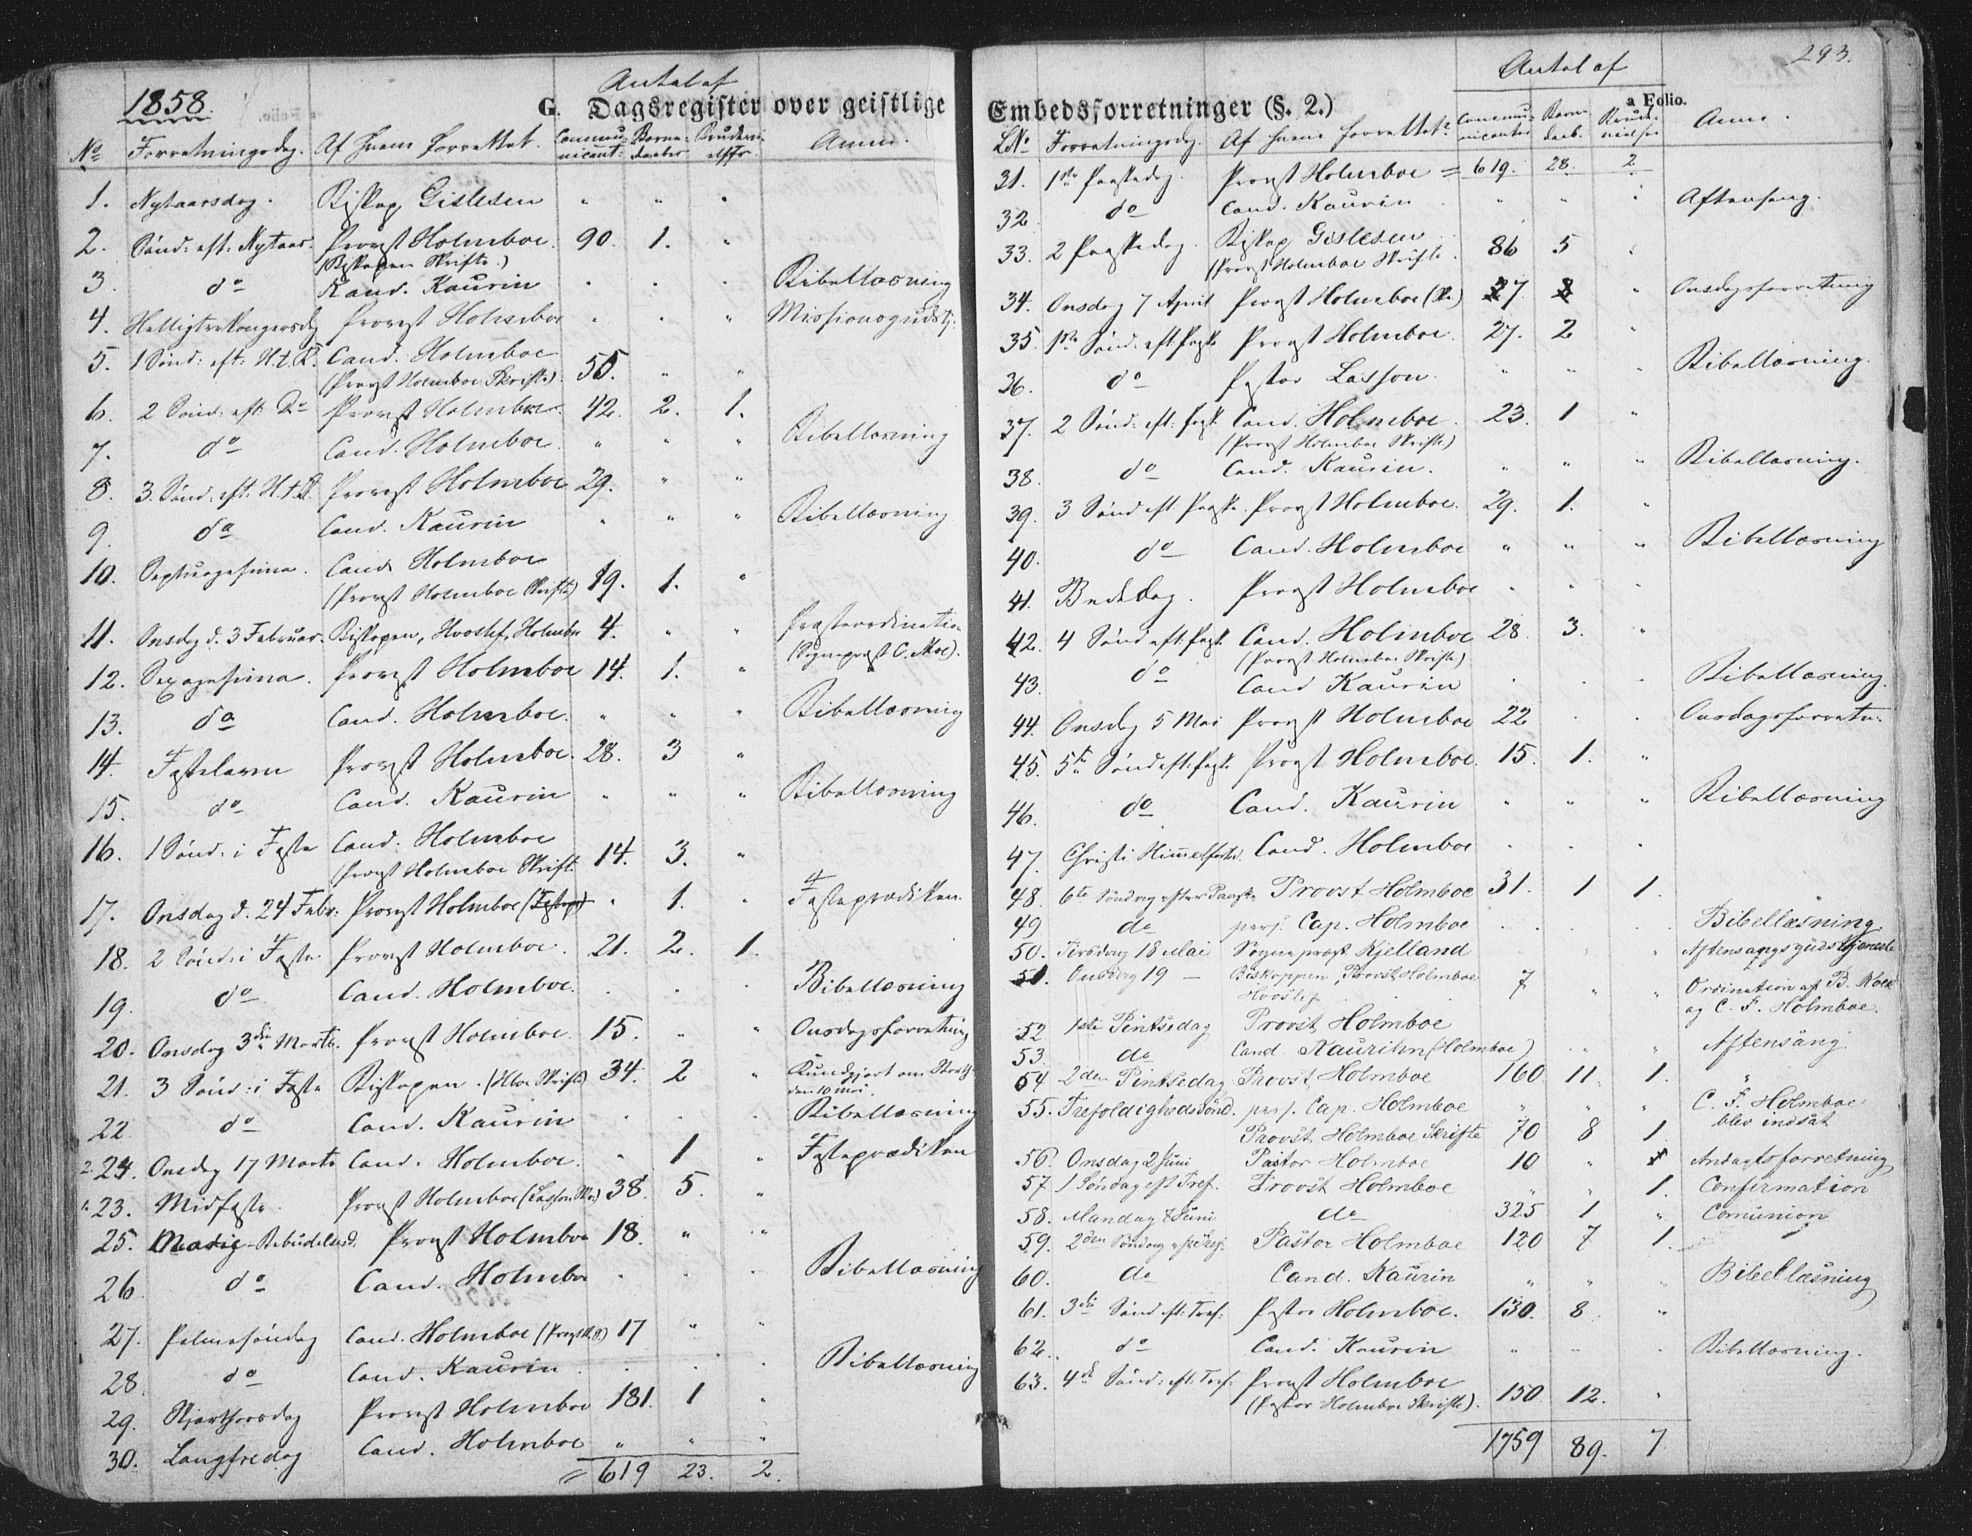 1858.
Antal af
G. Dagsregister over geistlige
No Forretningsdag. Af hvem forrettet. Communicant: Barnedaaber Brudevielser. Anm.
1. Nytaarsdag. Biskop Gislesen " " "
2. Sönd: eft: Nytaar. Provst Holmboe. 90. 1. "
(Biskopen Skrifte.)
3. do Kand. Kaurin " " " Bibellæsning
4. Helligtrekongersdag Provst Holmboe " " " Missionsgudstj:
5. 1 Sönd: eft: H.t.K. Cand. Holmboe
(Provst Holmboe Skrifte) 55. " "
6. 2 Sönd: eft: Do Provst Holmboe. 42. 2. 1.
7. do Cand. Holmboe. " " " Bibellæsning
8. 3. Sönd: eft: H.t.K. Provst Holmboe 29. " "
9. do Cand. Kaurin " " " Bibellæsning
10. Septuagesima. Cand. Holmboe
(Provst Holmboe Skrifte) 19. 1. "
11. Onsdag d. 3 Februar. Biskopen, Hvoslef, Holmboe 4. " " Præsteordination
(Sognepræst C. Moe).
12. Sexagesima. Provst Holmboe 14. 1. "
13. do Cand. Holmboe. " " " Bibellæsning
14. Fastelavn Provst Holmboe. 28. 3 "
15. do Cand. Kaurin " " " Bibellæsning
16. 1 Sönd: i Faste Cand. Holmboe
(Provst Holmboe Skrift. 14. 3. "
17. Onsdag d. 24 Febr: Provst Holmboe " 1. " Fasteprædiken.
18. 2 Sönd: i Faste Provst Holmboe. 21. 2. 1.
19. do Cand. Holmboe. . . . Bibellæsning
20. Onsdag 3die Marts. Provst Holmboe. 15. " " Onsdagsforretning
21. 3 Sönd: i Faste Biskopen. (Hboe Skrifte) 34. 2 " Kundgjort om Storth
den 10 Mai.
22. do Cand. Kaurin . . . Bibellæsning
2. 24. Onsdag 17 Marts Cand. Holmboe. " 1 " Fasteprædiken
1. 23. Midfaste. Provst Holmboe (Lasson Skr.) 38. 5. "
25. Mariæ-Bebudelsesd. Provst Holmboe 18. " "
26. do Cand. Holmboe . . . Bibellæsning
27. Palmesöndag Cand. Holmboe (Provst H.S.) 17 " "
28. do Cand. Kaurin . . . Bibellæsning
29. Skjærthorsdag Provst Holmboe 181. 1 "
30. Langfredag Cand. Holmboe " " "
= 619 23. 2.
293.
Antal af
Embedsforretninger (§. 2.)
a Folio.
LNo Forretningsdag. Af hvem forrettet. Communicanter Barnedaab. Brudevielser Anm.
31. 1ste Paaskedag. Provst Holmboe = 619. 28. 2.
32. do Cand. Kaurin " " " Aftensang.
33. 2 Paaskedag. Biskop Gislesen
(Provst Holmboe Skrifte. 86 5 "
34. Onsdag 7 April Provst Holmboe (Sk.) 27. " Onsdagsforretning
35. 1ste Sönd: eft Paaske Provst Holmboe. 27. 2 "
36. do Pastor Lasson. " " " Bibellæsning.
37. 2 Sönd: eft: Paask. Cand. Holmboe. 23. 1 "
(Provst Holmboe Skrifte.)
38. do Cand. Kaurin. " " " Bibellæsning.
39. 3 Sönd eft. Paaske. Provst Holmboe. 29. 1. "
40. do Cand. Holmboe " " " Bibellæsning
41. Bededag. Provst Holmboe " " "
42. 4 Sönd eft. Paask. Cand. Holmboe 28. 3. "
(Provst Holmboe Skrifte)
43. do Cand Kaurin . . . Bibellæsning.
44. Onsdag 5 Mai Provst Holmboe 22 . . Onsdagsforretn.
45. 5te Sönd eft: Paask Provst Holmboe. 15. 1. "
46. do Cand. Kaurin " " " Bibellæsning
47. Christi Himmelfartsd. Cand. Holmboe . . .
48. 6te Söndag efter Paaske Provst Holmboe 31. 1 1.
49 do pers. Cap. Holmboe . . . Bibellæsning
50. Tirsdag 18 Mai Sognepræst Kjelland . . " Aftensangsgudstjeneste
51. Onsdag 19 — Biskoppen, Provst Holmboe 7 " " Ordination af B. Koch
Hvoslef og C. F. Holmboe.
52 1ste Pintsedag Provst Holmboe
53. do Cand. Kaurin (Holmboe) . " " Aftensang
54 2den Pintsedag Provst Holmboe 160 11. 1. "
55. Trefoldighedssönd. pers. Cap. Holmboe " " " C. F. Holmboe
Provst Holmboe Skrifte 70 8 1. blev indsat
56. Onsdag 2 Juni Pastor Holmboe 10 " Andagtsforretning
57 1 Söndag eft Tref. Provst Holmboe " " 1. Confirmation
58. Mandag 7 Juni do 325 1 " Comunion
59. 2den Söndag eft Tref. Pastor Holmboe 120 7 1.
60. do Cand. Kaurin " " " Bibellæsning
61. 3die Sönd eft: Tref: Pastor Holmboe. 130. 8. "
62. do Cand. Kaurin " " " Bibellæsning.
63. 4de Sönd: eft: Tref: Provst Holmboe
(Pastor Holmboe Skrifte). 150 12. "
1759 89. 7